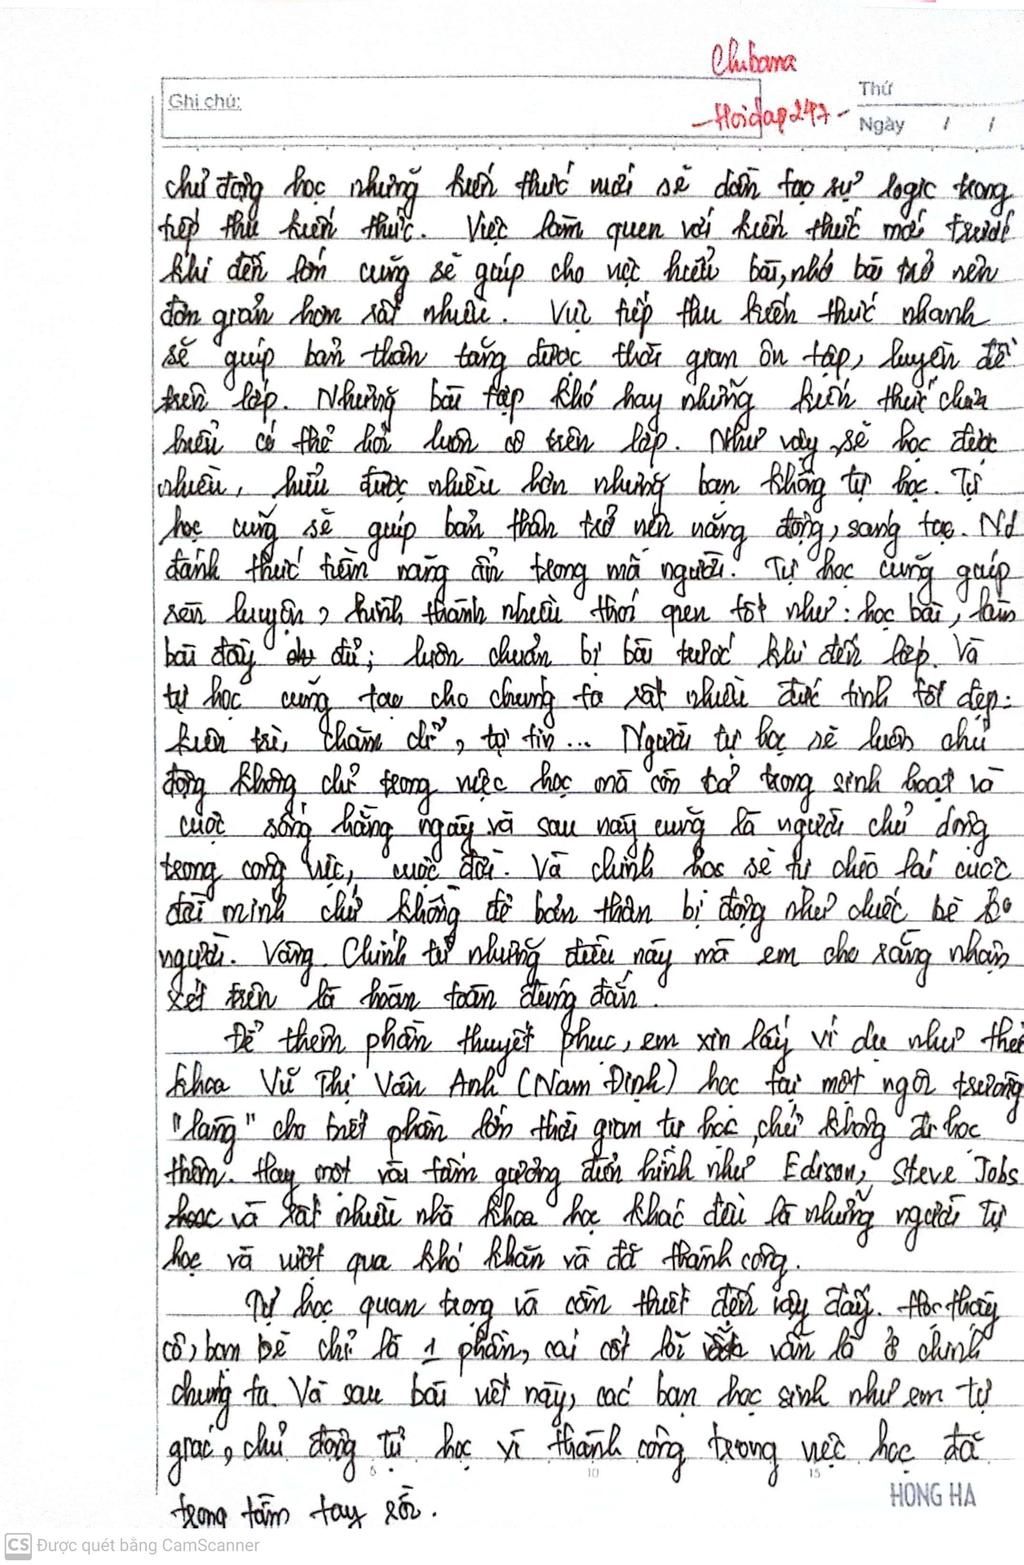 Chibana
Ghi chú:
-Hoidap247-
Thứ
Ngày / /
chủ động học những kiến thức mới sẽ dần tạo sự logic trong
tiếp thu kiến thức. Việc làm quen với kiến thức mới trước
khi đến lớp cũng sẽ giúp cho việc hiểu bài, nhớ bài trở nên
đơn giản hơn rất nhiều. Việc tiếp thu kiến thức nhanh
sẽ giúp bản thân tăng được thời gian ôn tập, luyện đề
trên lớp. Những bài tập khó hay những kiến thức chưa
hiểu có thể hỏi luôn cô trên lớp. Như vậy sẽ học được
nhiều, hiểu được nhiều hơn những bạn không tự học. Tự
học cũng sẽ giúp bản thân trở nên năng động, sáng tạo. Nó
đánh thức tiềm năng ẩn trong mỗi người. Tự học cũng giúp
rèn luyện, hình thành nhiều thói quen tốt như: học bài, làm
bài đầy đủ; luôn chuẩn bị bài trước khi đến lớp. Và
tự học cũng tạo cho chúng ta rất nhiều đức tính tốt đẹp:
kiên trì, chăm chỉ, tự tin... Người tự học sẽ luôn chủ
động không chỉ trong việc học mà còn cả trong sinh hoạt và
cuộc sống hằng ngày và sau này cũng là người chủ động
trong công việc, cuộc đời. Và chính học sẽ tự chèo lái cuộc
đời mình chứ không để bản thân bị động như chiếc bè
người. Vâng. Chính từ những điều này mà em cho rằng nhận
xét trên là hoàn toàn đúng đắn.
Để thêm phần thuyết phục, em xin lấy ví dụ như thủ
khoa Vũ Thị Vân Anh (Nam Định) học tại một ngôi trường
"làng" cho biết phần lớn thời gian tự học, chứ không đi học
thêm. Hay một vài tấm gương điển hình như Edison, Steve Jobs
và rất nhiều nhà khoa học khác đều là những người tự
học và vượt qua khó khăn và đã thành công.
Tự học quan trọng và cần thiết đến vậy đấy. Học thầy
cô, bạn bè chỉ là 1 phần, cái cốt lõi vẫn là ở chính
chúng ta. Và sau bài viết này, các bạn học sinh như em tự
giác, chủ động tự học vì thành công trong việc học đã
trong tầm tay rồi.
5 10 15
HONG HA
CS Được quét bằng CamScanner